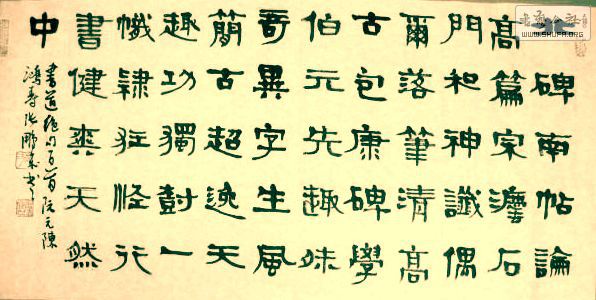 碑南帖論
高篇宗瘞石
門和神讖偶
爾落筆清高
古包康碑學
伯元先趣味
奇異字生風
簡古超逸天
趣功獨樹一
幟隸狂怪行
書健爽天然
中
書道絕句百首阮元陳
鴻壽 張鵬書
WWW.SHUFA.ORG